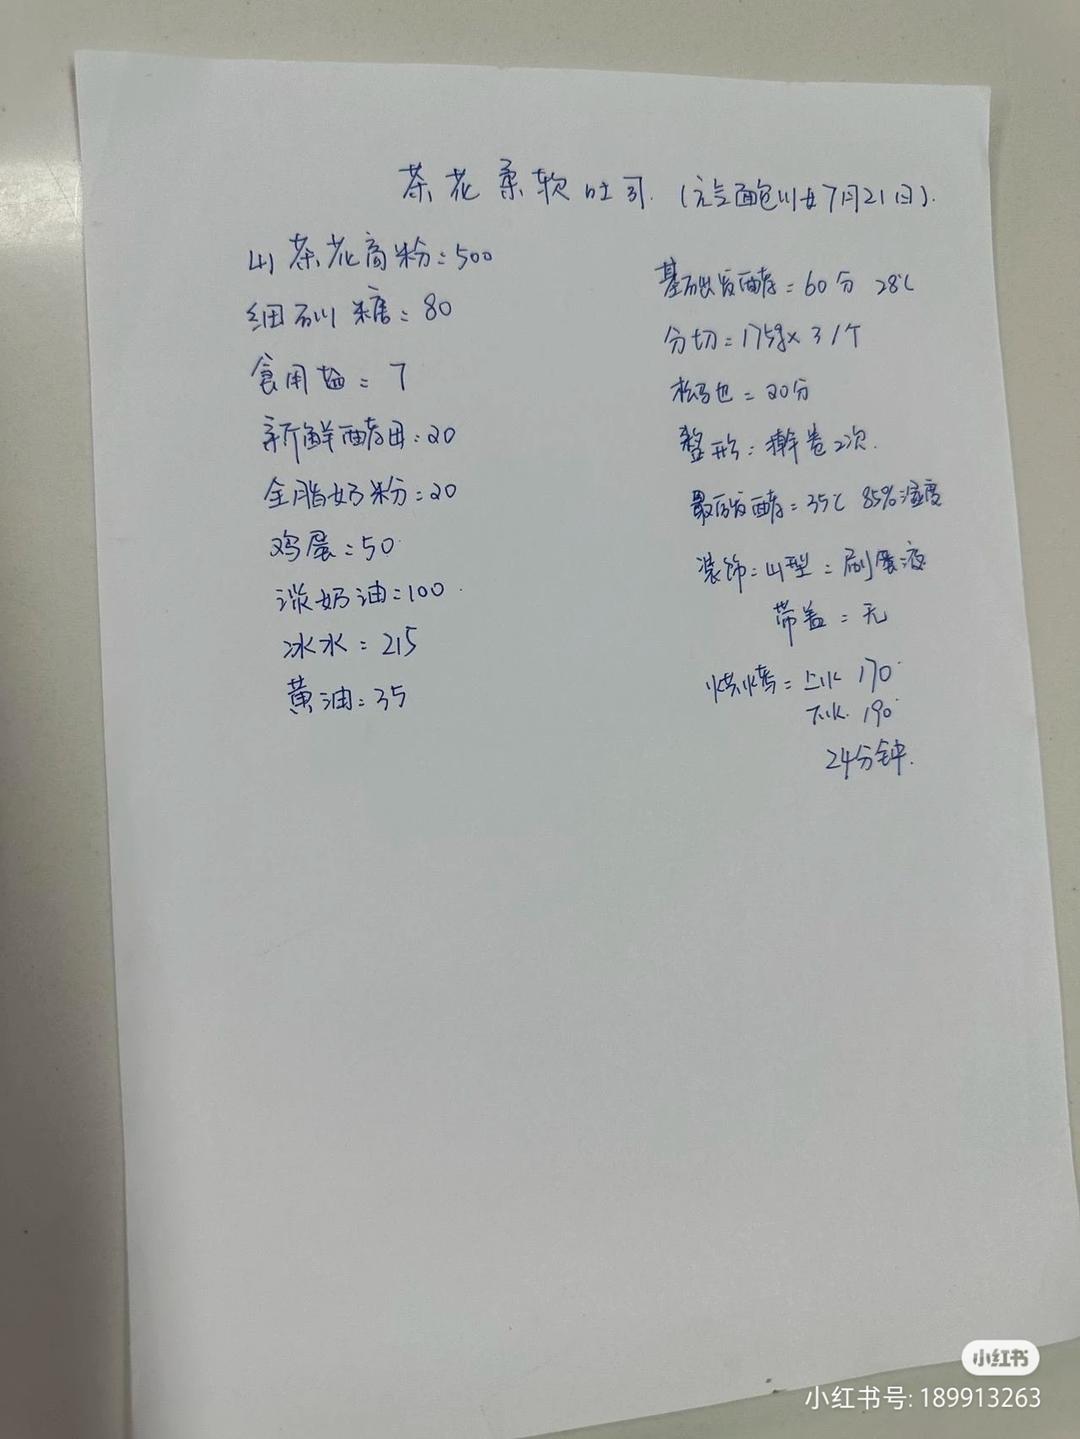 茶花柔软吐司.(元气面包川女7月21日).
山茶花高粉:500
细砂糖:80
食用盐=7
新鲜酵母:20
全脂奶粉:20
鸡蛋:50
淡奶油:100
冰水:215
黄油:35
基础发酵=60分 28℃
分切=175g×3/个
松弛=20分
整形:擀卷2次.
最后发酵=35℃ 85%湿度
装饰=山型=刷蛋液
带盖=无
烘烤=上火170°
下火.190°
24分钟.
小红书
小红书号: 189913263